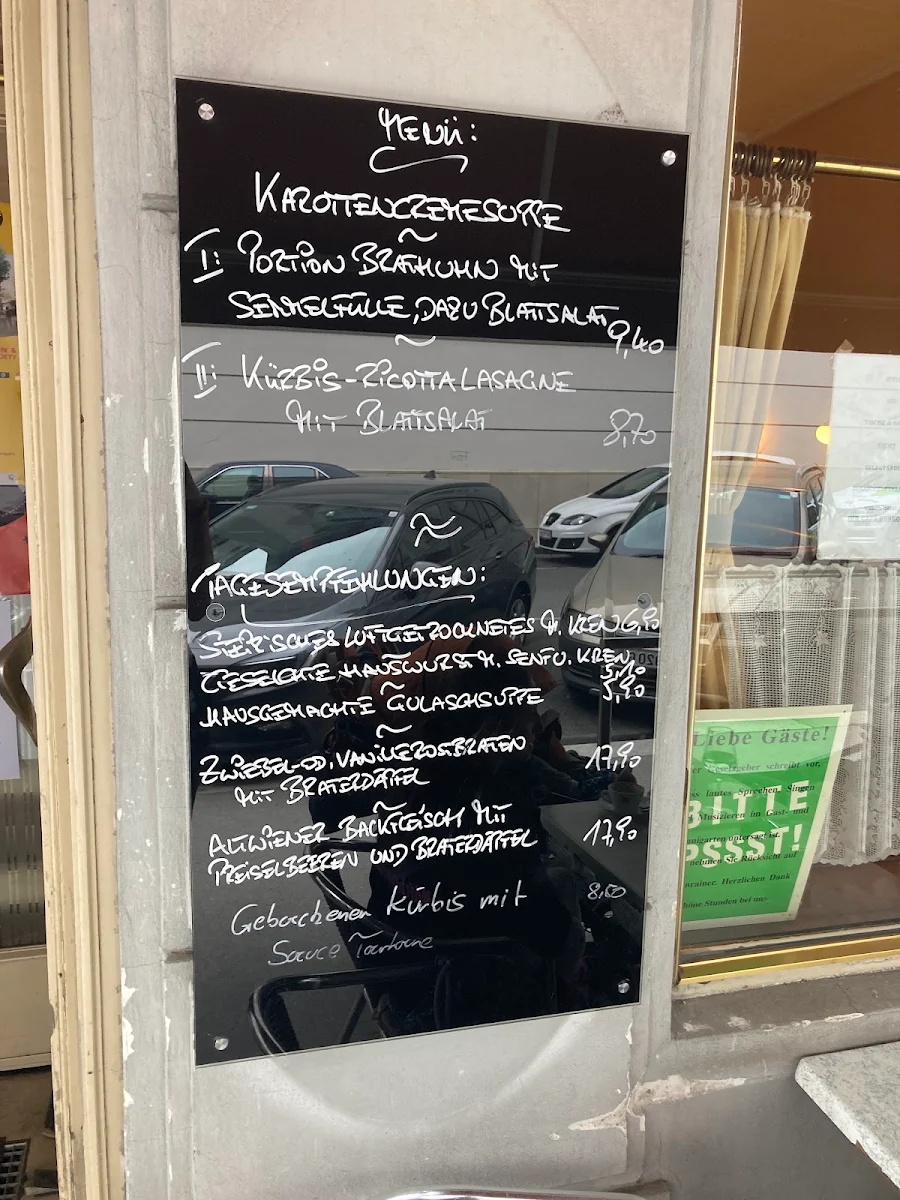 MENÜ:
KAROTTENCREMESUPPE
~
I: PORTION BRATHUHN MIT
SEMMELFÜLLE, DAZU BLATTSALAT 9,40
~
II: KÜRBIS-RICOTTALASAGNE
MIT BLATTSALAT 8,70
≈
TAGESEMPFEHLUNGEN:
STEIRISCHES LUFTGETROCKNETES M. KREN 6,90
GESELCHTE HAUSWURST M. SENF U. KREN
5,90
~
HAUSGEMACHTE GULASCHSUPPE 5,90
~
ZWIEBEL-OD. VANILLEROSTBRATEN 17,90
MIT BRATERDÄPFEL
~
ALTWIENER BACKFLEISCH MIT
PREISELBEEREN UND BRATERDÄPFEL 17,90
Gebackener Kürbis mit 8,60
Sauce Tartare
Liebe Gäste!
schreibt vor,
lautes Sprechen, Singen
Musizieren im Gast- und
untersagt ist.
BITTE
PSSST!
nehmen Sie Rücksicht auf
Herzlichen Dank
Stunden bei uns